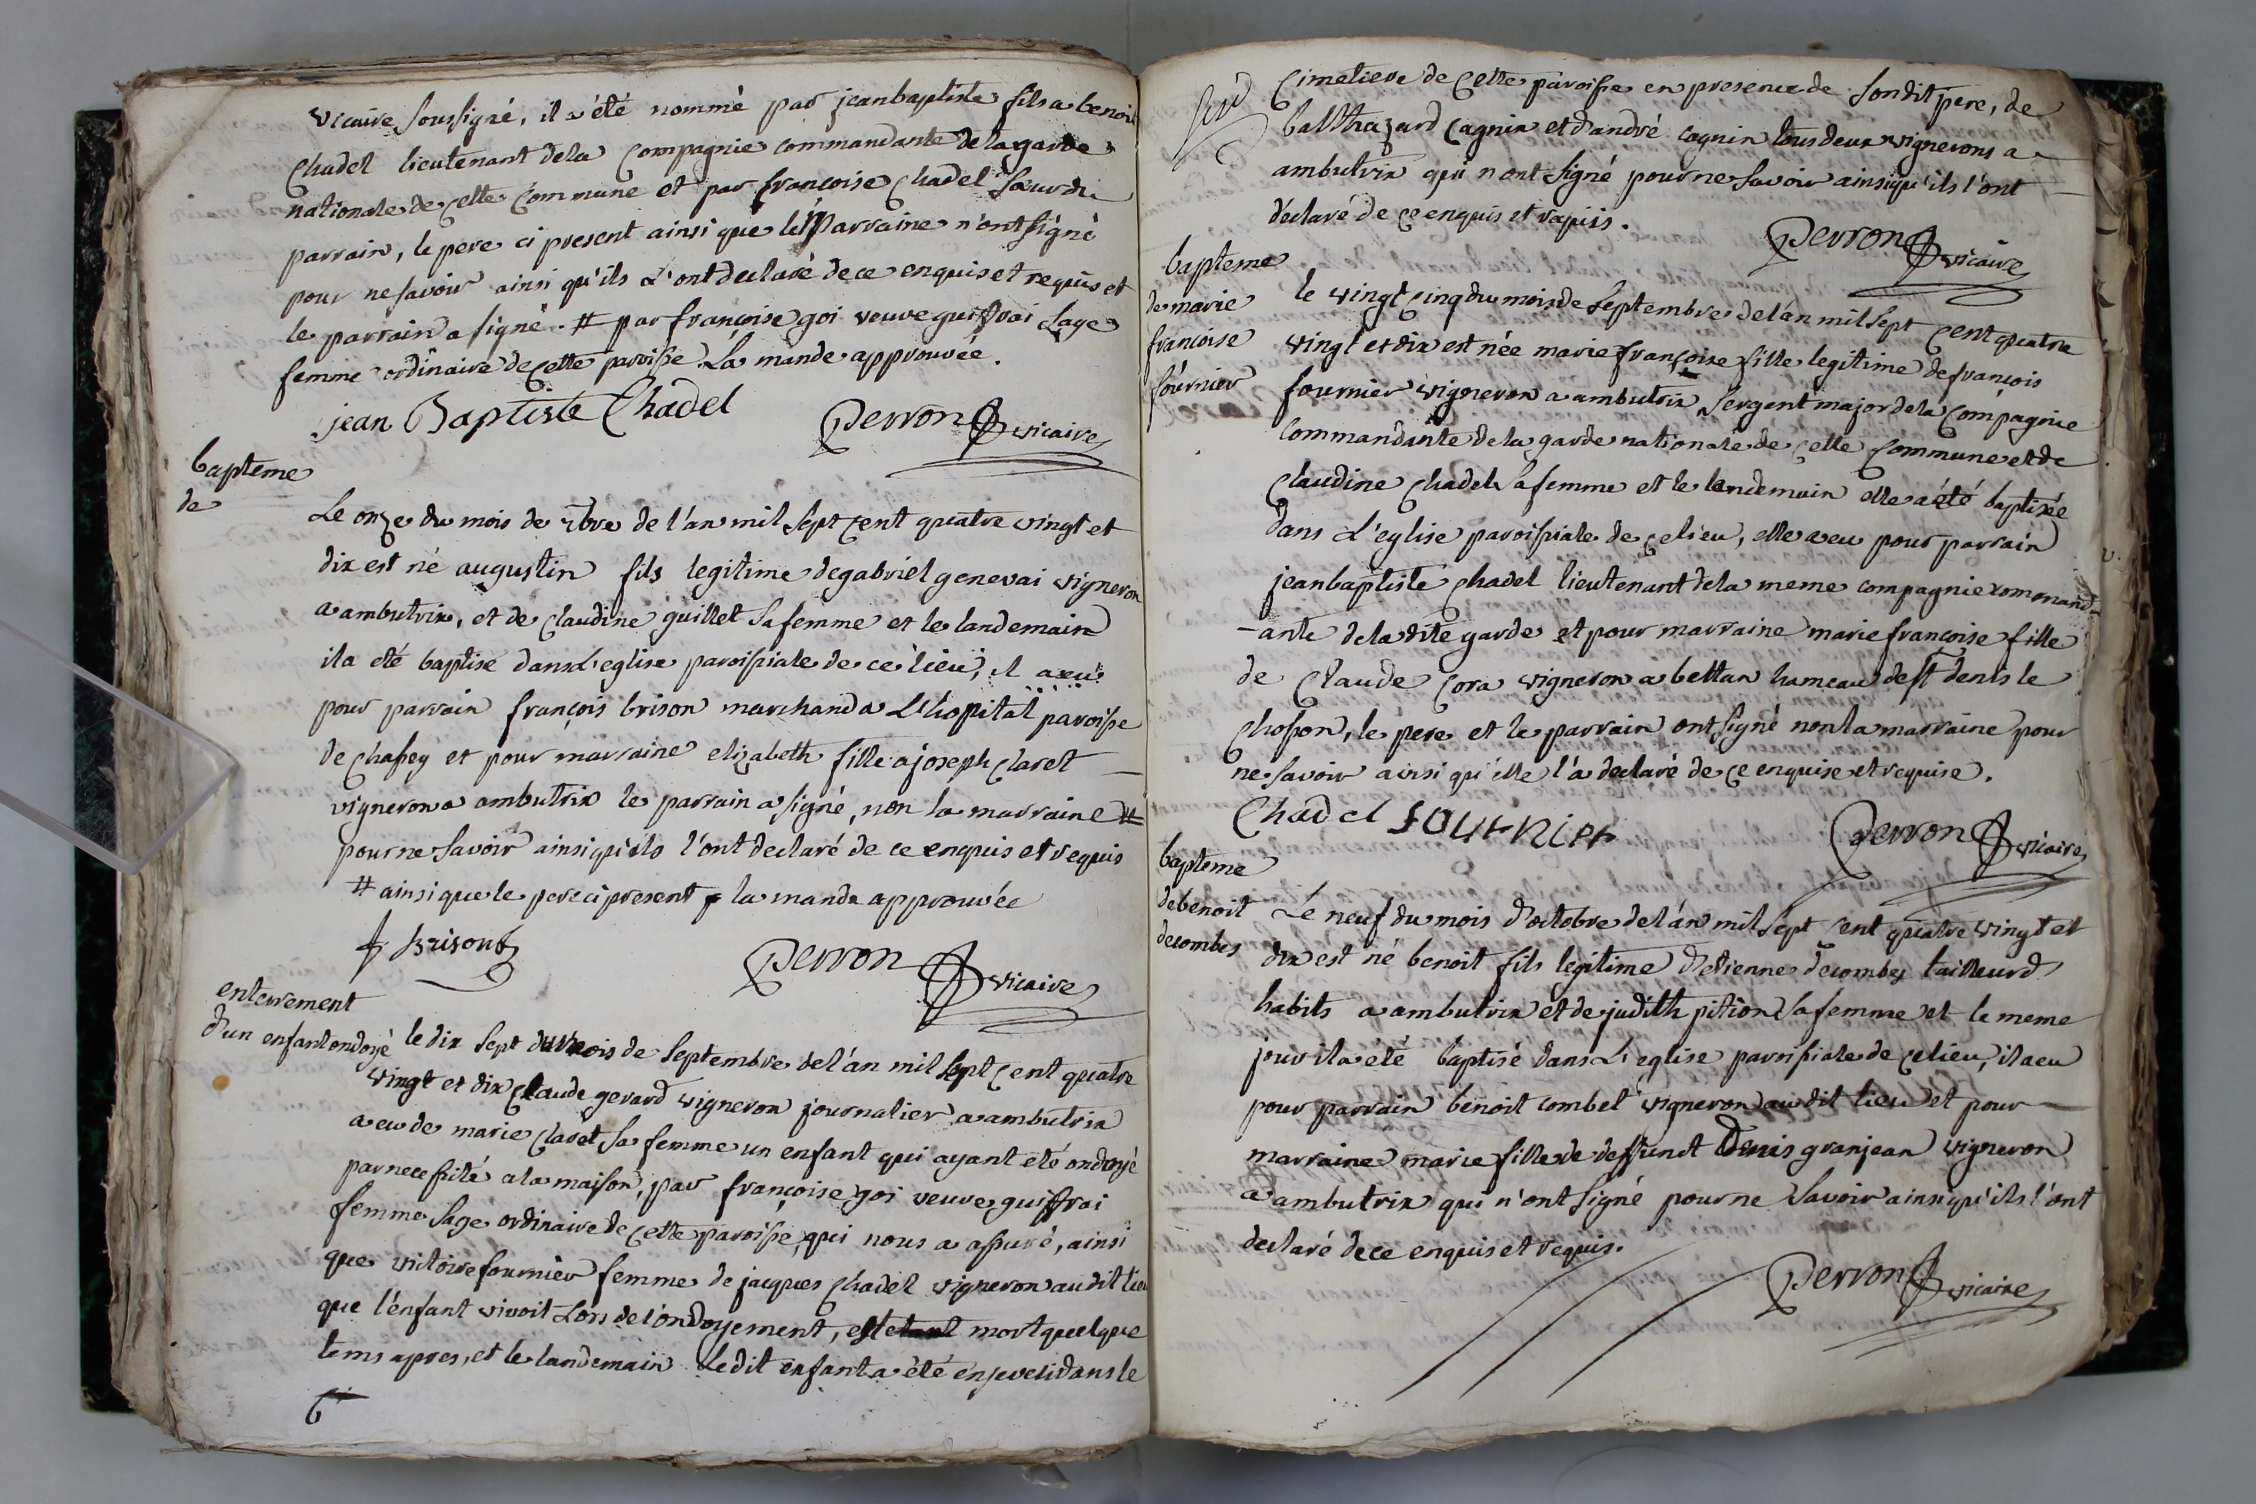 vicaire soussigné, il a été nommé par jeanbaptiste fils a benoit
chadel lieutenant dela compagnie commandante de la garde
nationale de cette commune et par françoise chadel sœur du
parrain, le pere ci present ainsi que la marraine n'ont signé
pour ne savoir ainsi qu'ils l'ont declaré de ce enquis et requis et
le parrain a signé. # par françoise goi veuve guiffrai sage
femme ordinaire de cette paroisse la mande approuvée.
jean Baptiste Chadel
Perron vicaire
bapteme
de
Le onze du mois de 7bre de l'an mil sept cent quatre vingt et
dix est né augustin fils legitime de gabriel genevai vigneron
a ambutrix, et de claudine guillet sa femme et le landemain
il a eté baptisé dans l'eglise paroissiale de ce lieu, il a eu
pour parrain françois brison marchand a l'hopital paroisse
de chasey et pour marraine elizabeth fille a joseph claret
vigneron a ambutrix le parrain a signé, non la marraine #
pour ne savoir ainsi qu'ils l'ont declaré de ce enquis et requis
# ainsi que le pere ci present la mande approuvée
f. Brison
Perron vicaire
enterrement
d'un enfant ondoyé
le dix sept du mois de septembre de l'an mil sept cent quatre
vingt et dix claude gerard vigneron journalier a ambutrix
a eu de marie claret sa femme un enfant qui ayant eté ondoyé
par necessité a la maison, par françoise goi veuve guiffrai
femme sage ordinaire de cette paroisse, qui nous a assuré, ainsi
que victoire fournier femme de jacques chadel vigneron audit lieu
que l'enfant vivoit lors de l'ondoyement, est mort quelque
tems apres, et le landemain ledit enfant a été enseveli dans le
cimetiere de cette paroisse en presence de sondit pere, de
balthazard cagnin et d'andré cagnin tous deux vignerons a
ambutrix qui n'ont signé pour ne savoir ainsi qu'ils l'ont
déclaré de ce enquis et requis.
Perron vicaire
bapteme
de marie
françoise
fournier
le vingt cinq du mois de septembre de l'an mil sept cent quatre
vingt et dix est née marie françoise fille legitime de françois
fournier vigneron a ambutrix sergent major de la compagnie
commandante de la garde nationale de cette commune et de
claudine chadel sa femme et le lendemain elle a été baptisée
dans l'eglise paroissiale de ce lieu, elle a eu pour parrain
jeanbaptiste chadel lieutenant de la meme compagnie commend
-ante de la dite garde et pour marraine marie françoise fille
de claude cora vigneron a bettan hameau de st denis le
choson, le pere et le parrain ont signé non la marraine pour
ne savoir ainsi qu'elle l'a declaré de ce enquise et requise.
Chadel fournier
Perron vicaire
bapteme
de benoit
decombes
Le neuf du mois d'octobre de l'an mil sept cent quatre vingt et
dix est né benoit fils legitime d'etienne decombes tailleur d
habits a ambutrix et de judith pition sa femme et le meme
jour il a été baptisé dans l'eglise paroissiale de ce lieu, il a eu
pour parrain benoit combet vigneron audit lieu et pour
marraine marie fille de deffunct Denis granjean vigneron
a ambutrix qui n'ont signé pour ne savoir ainsi qu'ils l'ont
declaré de ce enquis et requis.
Perron vicaire